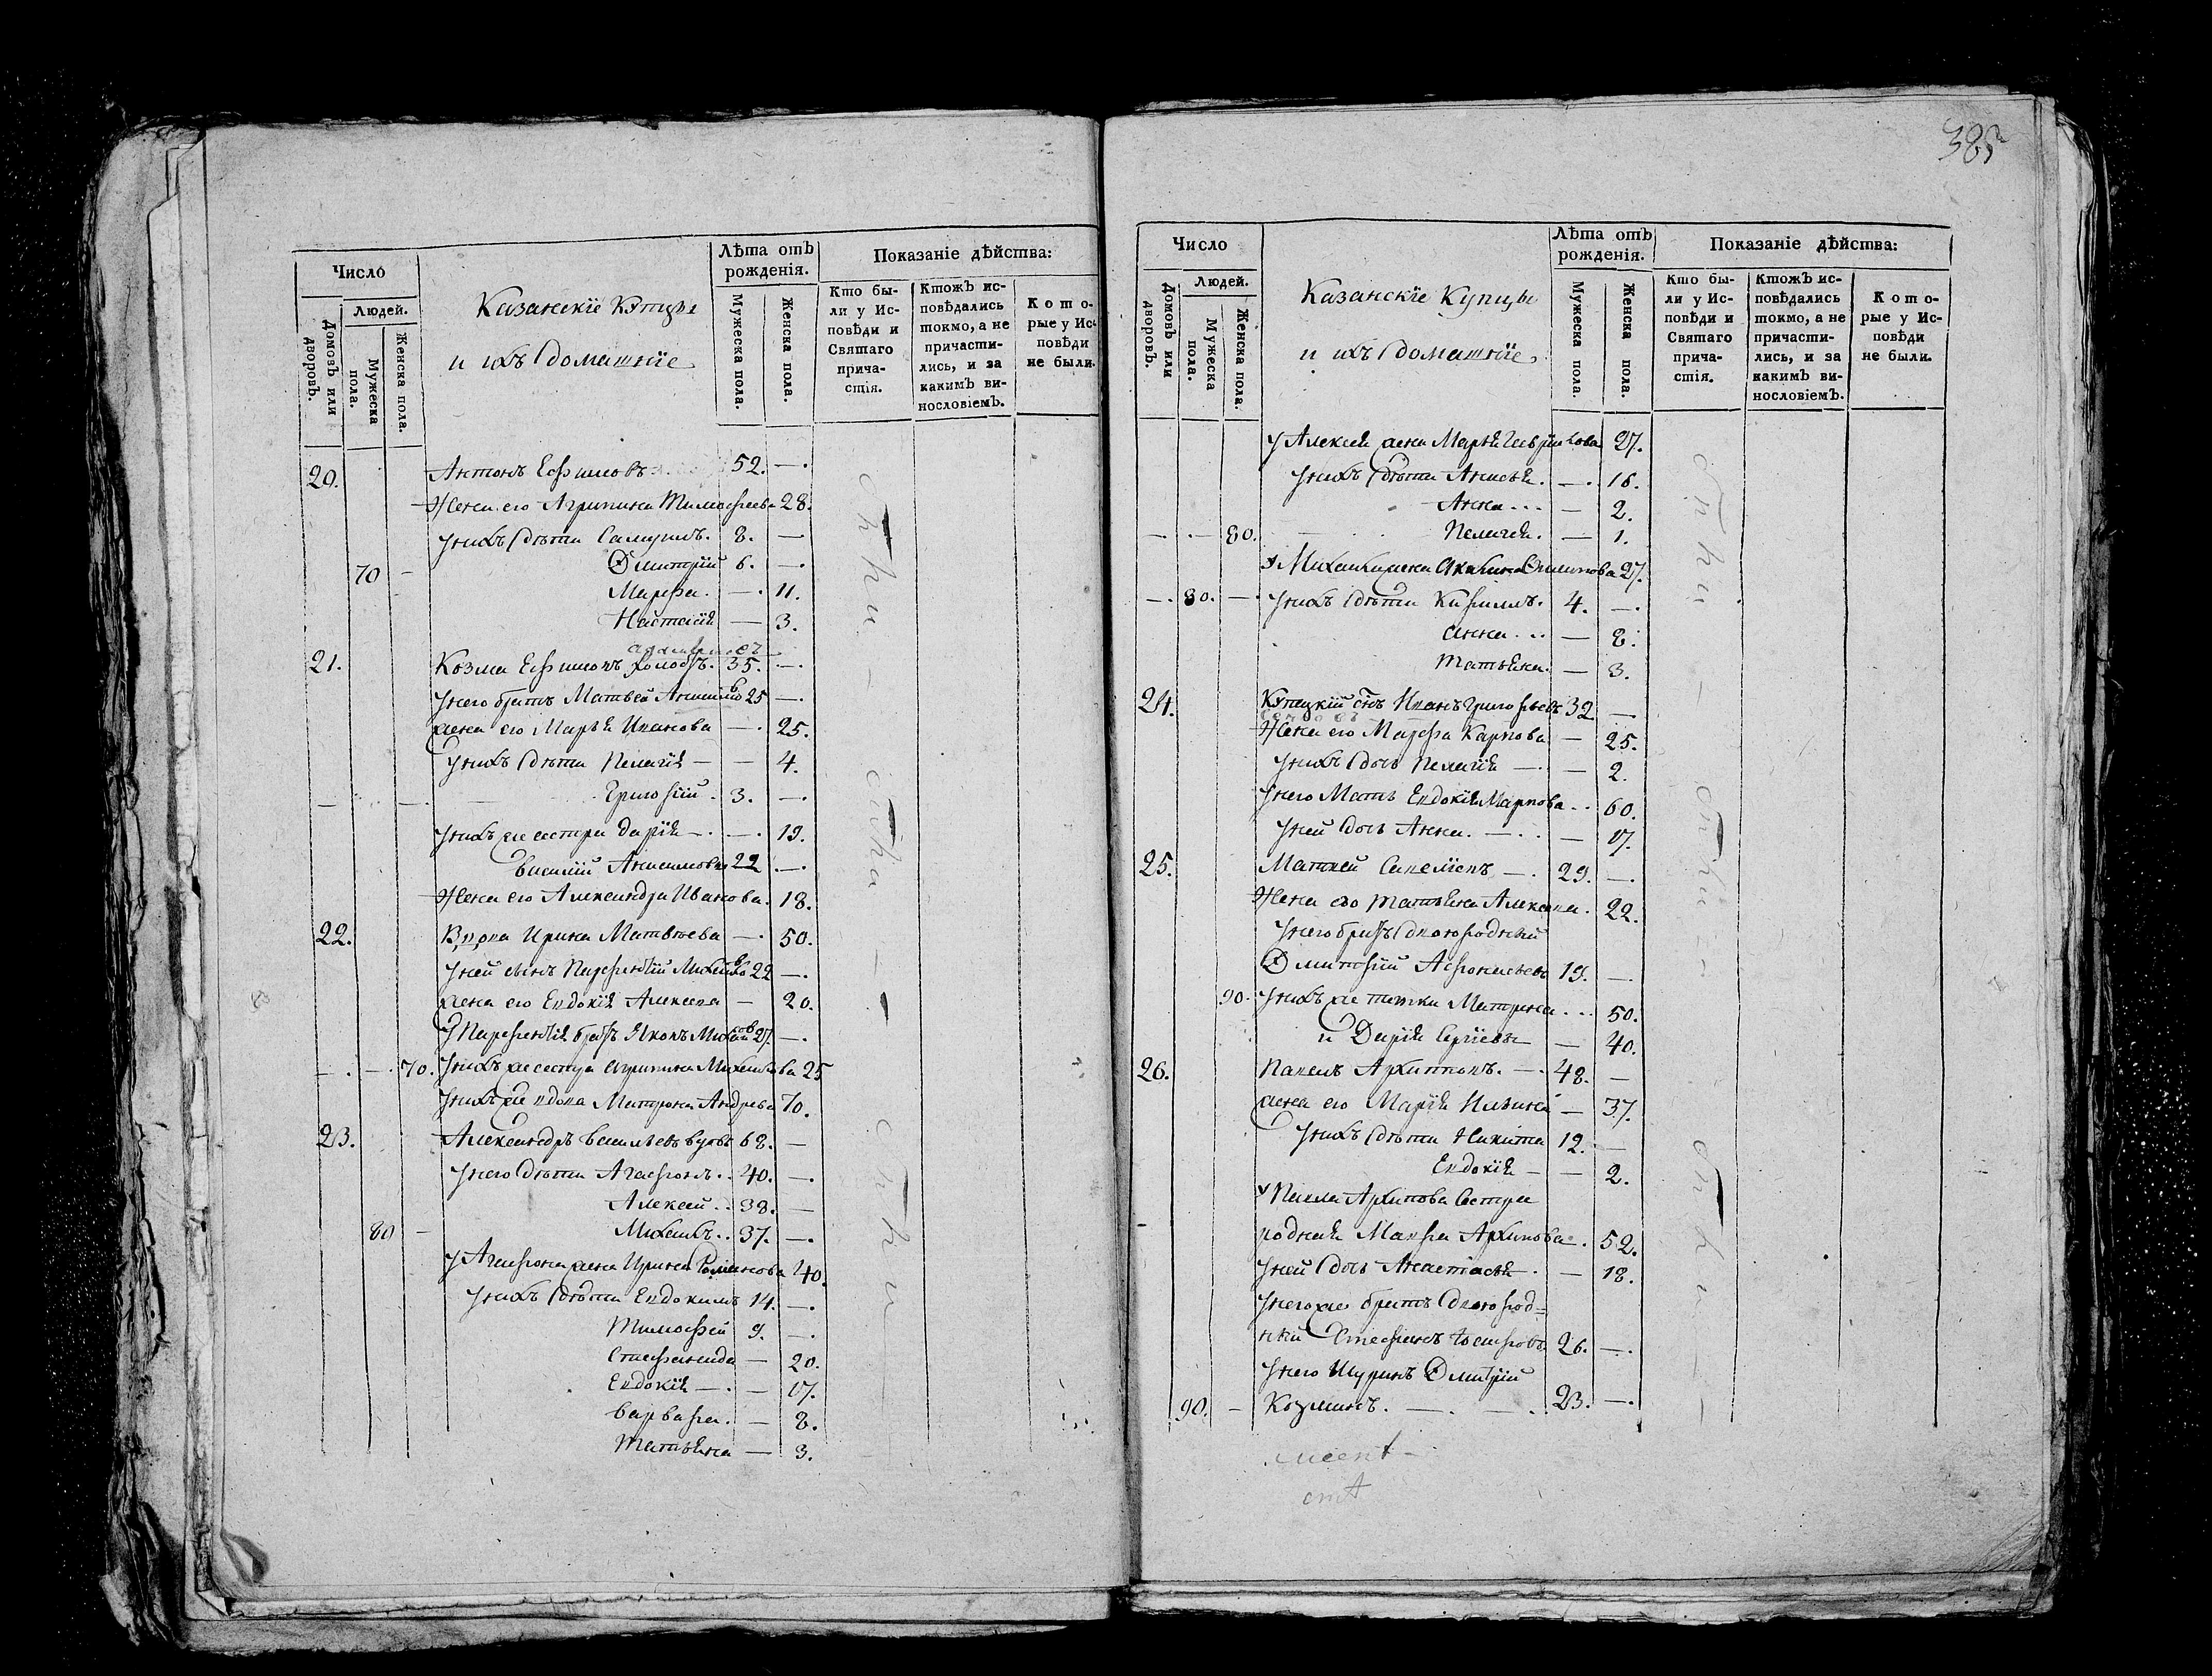 Число
Людей.
Домовъ или дворовъ.
Мужеска пола.
Женска пола.
Казанскіе Купцы
и ихъ домашніе
Лѣта отъ
рожденія.
Мужеска пола.
Женска пола.
Показаніе дѣйства:
Кто бы-
ли у Ис-
повѣди и
Святаго
прича-
стія.
Ктожъ ис-
повѣдались
токмо, а не
причасти-
лись, и за
какимъ ви-
нословіемъ.
Кото-
рые у Ис-
повѣди
не были.
20. Антонъ Ефимовъ 52. —
Жена его Агрипина Тимофеева 28.
У нихъ дѣти Самуилъ. 8. —
Дмитрій 6. —
70 —
Марфа. — 11.
Настасія — 3.
21. Козма Ефимовъ 35. —
У него братъ Матвей Анисимовъ 25 —
жена его Марья Иванова — 25.
У нихъ дѣти Пелагія — — 4.
Григорій. 3. —
У нихъ же сестра Дарія — — 19.
Василій Анисимовъ 22 —
Жена его Александра Иванова. 18.
22. Вдова Ирина Матвѣева — 50.
У ней сынъ Парфентій 22 —
жена его Евдокія Алексева — 20.
У Парфентія братъ Яковъ 27. —
70. У нихъ же сестра Агрипина Михаилова 25
У нихъ же вдова Матрона Андрева 70.
23. Александръ Васильевъ 68. —
У него дѣти Агафонъ.. 40. —
Алексей.. 38. —
80 — Михаилъ.. 37. —
У Агафона жена Ирина Романова 40.
У нихъ дѣти Евдокимъ 14. —
Тимофей 9. —
Стефанида — 20.
Евдокія — — 17.
Варвара. — 8.
Татьяна — 3.
385
Число
Людей.
Домовъ или дворовъ.
Мужеска пола.
Женска пола.
Казанскіе Купцы
и ихъ домашніе
Лѣта отъ
рожденія.
Мужеска пола.
Женска пола.
Показаніе дѣйства:
Кто бы-
ли у Ис-
повѣди и
Святаго
прича-
стія.
Ктожъ ис-
повѣдались
токмо, а не
причасти-
лись, и за
какимъ ви-
нословіемъ.
Кото-
рые у Ис-
повѣди
не были.
У Алексея жена Марья Гаврилова 27.
У нихъ дѣти Анисья. — 16.
Анна... — 2.
— — 80. Пелагея. — 1.
У Михаила жена Акилина Филипова 27.
— 80. — У нихъ дѣти Кирилъ. 4. —
Анна... — 8.
Татьяна. — 3.
24. Купецкій сынъ Иванъ Григорьевъ 32 —
Жена его Марфа Карпова — 25.
У нихъ дочь Пелагія — — 2.
У него Мать Евдокія Марпова.. 60.
У ней дочь Анна. — — 17.
25. Матвей Савеліевъ — 29. —
Жена его Татьяна Алексева. 22.
У него братъ двоюродный
Дмитрій Афонасьевъ 19. —
90. У нихъ же тетки Матрона... 50.
и Дарія Сергіевы — 40.
26. Павелъ Архиповъ. — 48. —
жена его Марія Ильина — 37.
У нихъ дѣти Никита 12. —
Евдокія — — 2.
У Павла Архипова Сестра
родная Мавра Архипова. 52.
У ней дочь Анастасья — 18.
У него же братъ двоюрод=
ный Стефанъ 26. —
У него Шуринъ Дмитрій
90. — Козминъ. — — 23. —